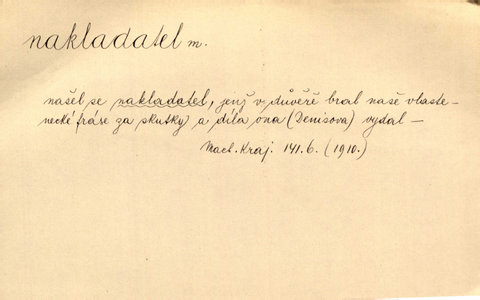 nakladatel m.
našel se nakladatel, jenž v důvěře bral naše vlaste-
necké fráse za skutky a díla ona (Denisova) vydal –
Mach. Kraj. 141.6. (1910.)